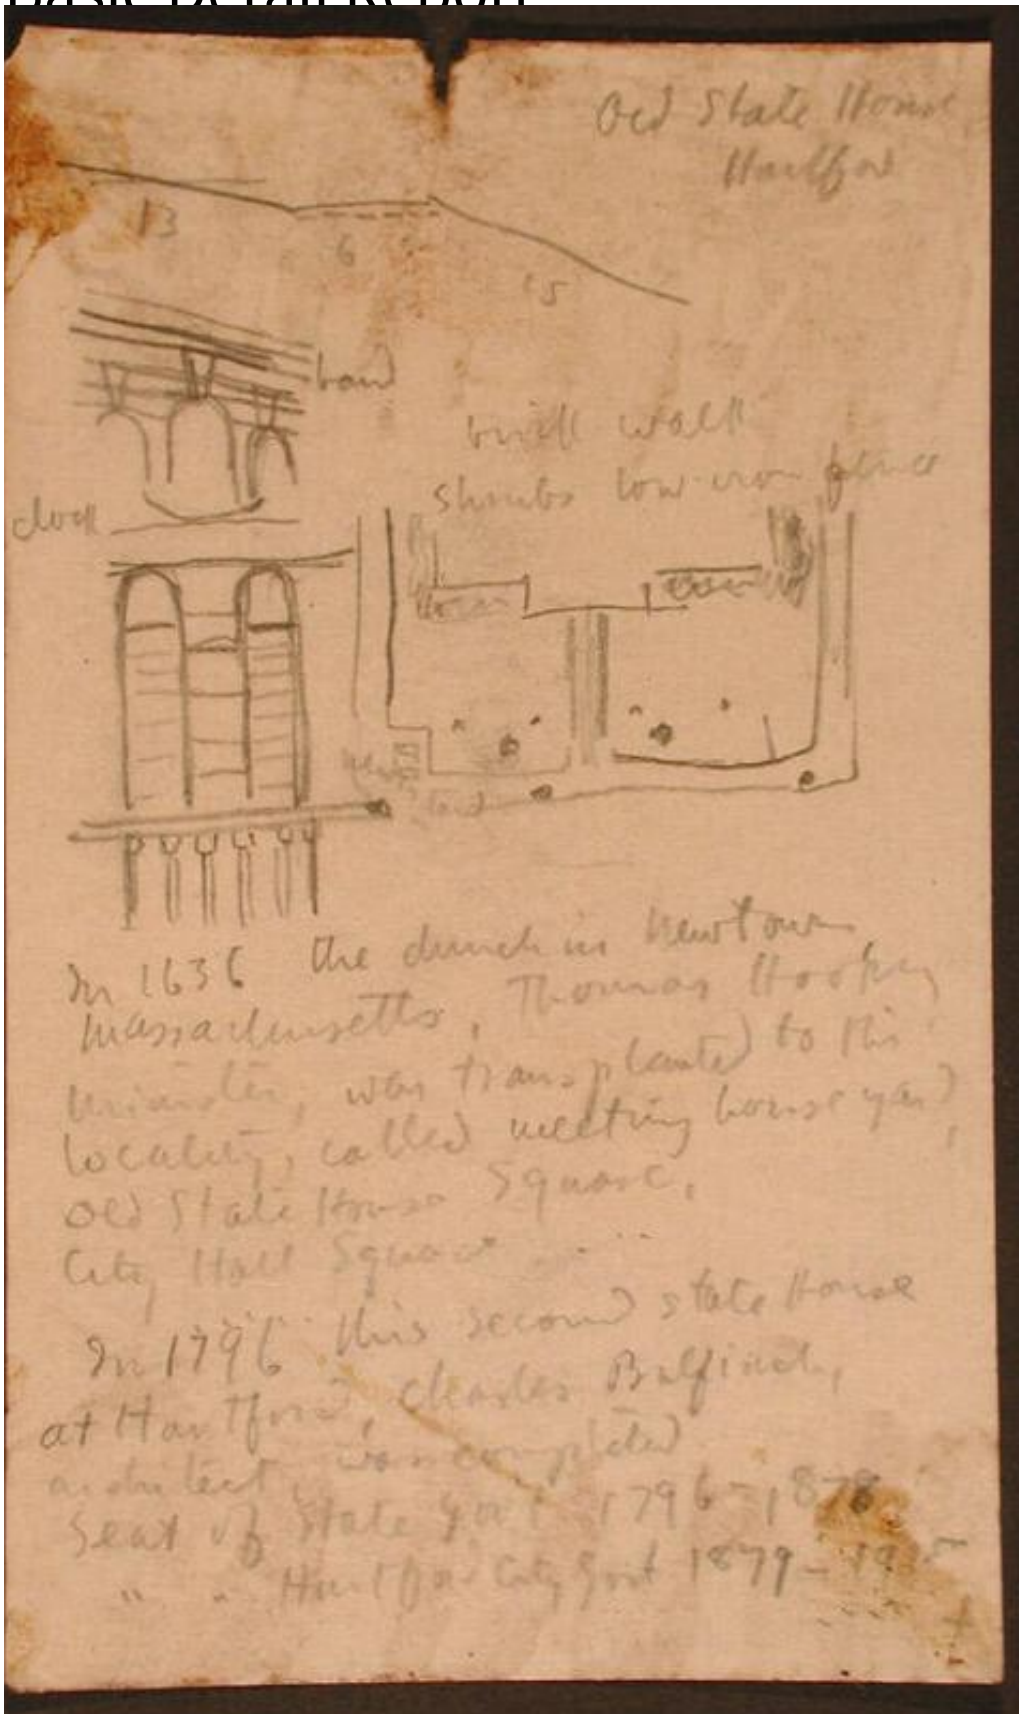 Basic Detail Report
Old State House
Hartford
13
6
15
band
brick walk
shrubs low iron fence
clock
In 1636 the church in Newtown
Massachusetts, Thomas Hooker,
minister, was transplanted to this
locality, called meeting house yard,
Old State House Square,
City Hall Square
In 1796 this second state House
at Hartford, Charles Bulfinch,
architect, was completed
Seat of State Govt 1796-1878
" " Hartford City Govt 1879-19